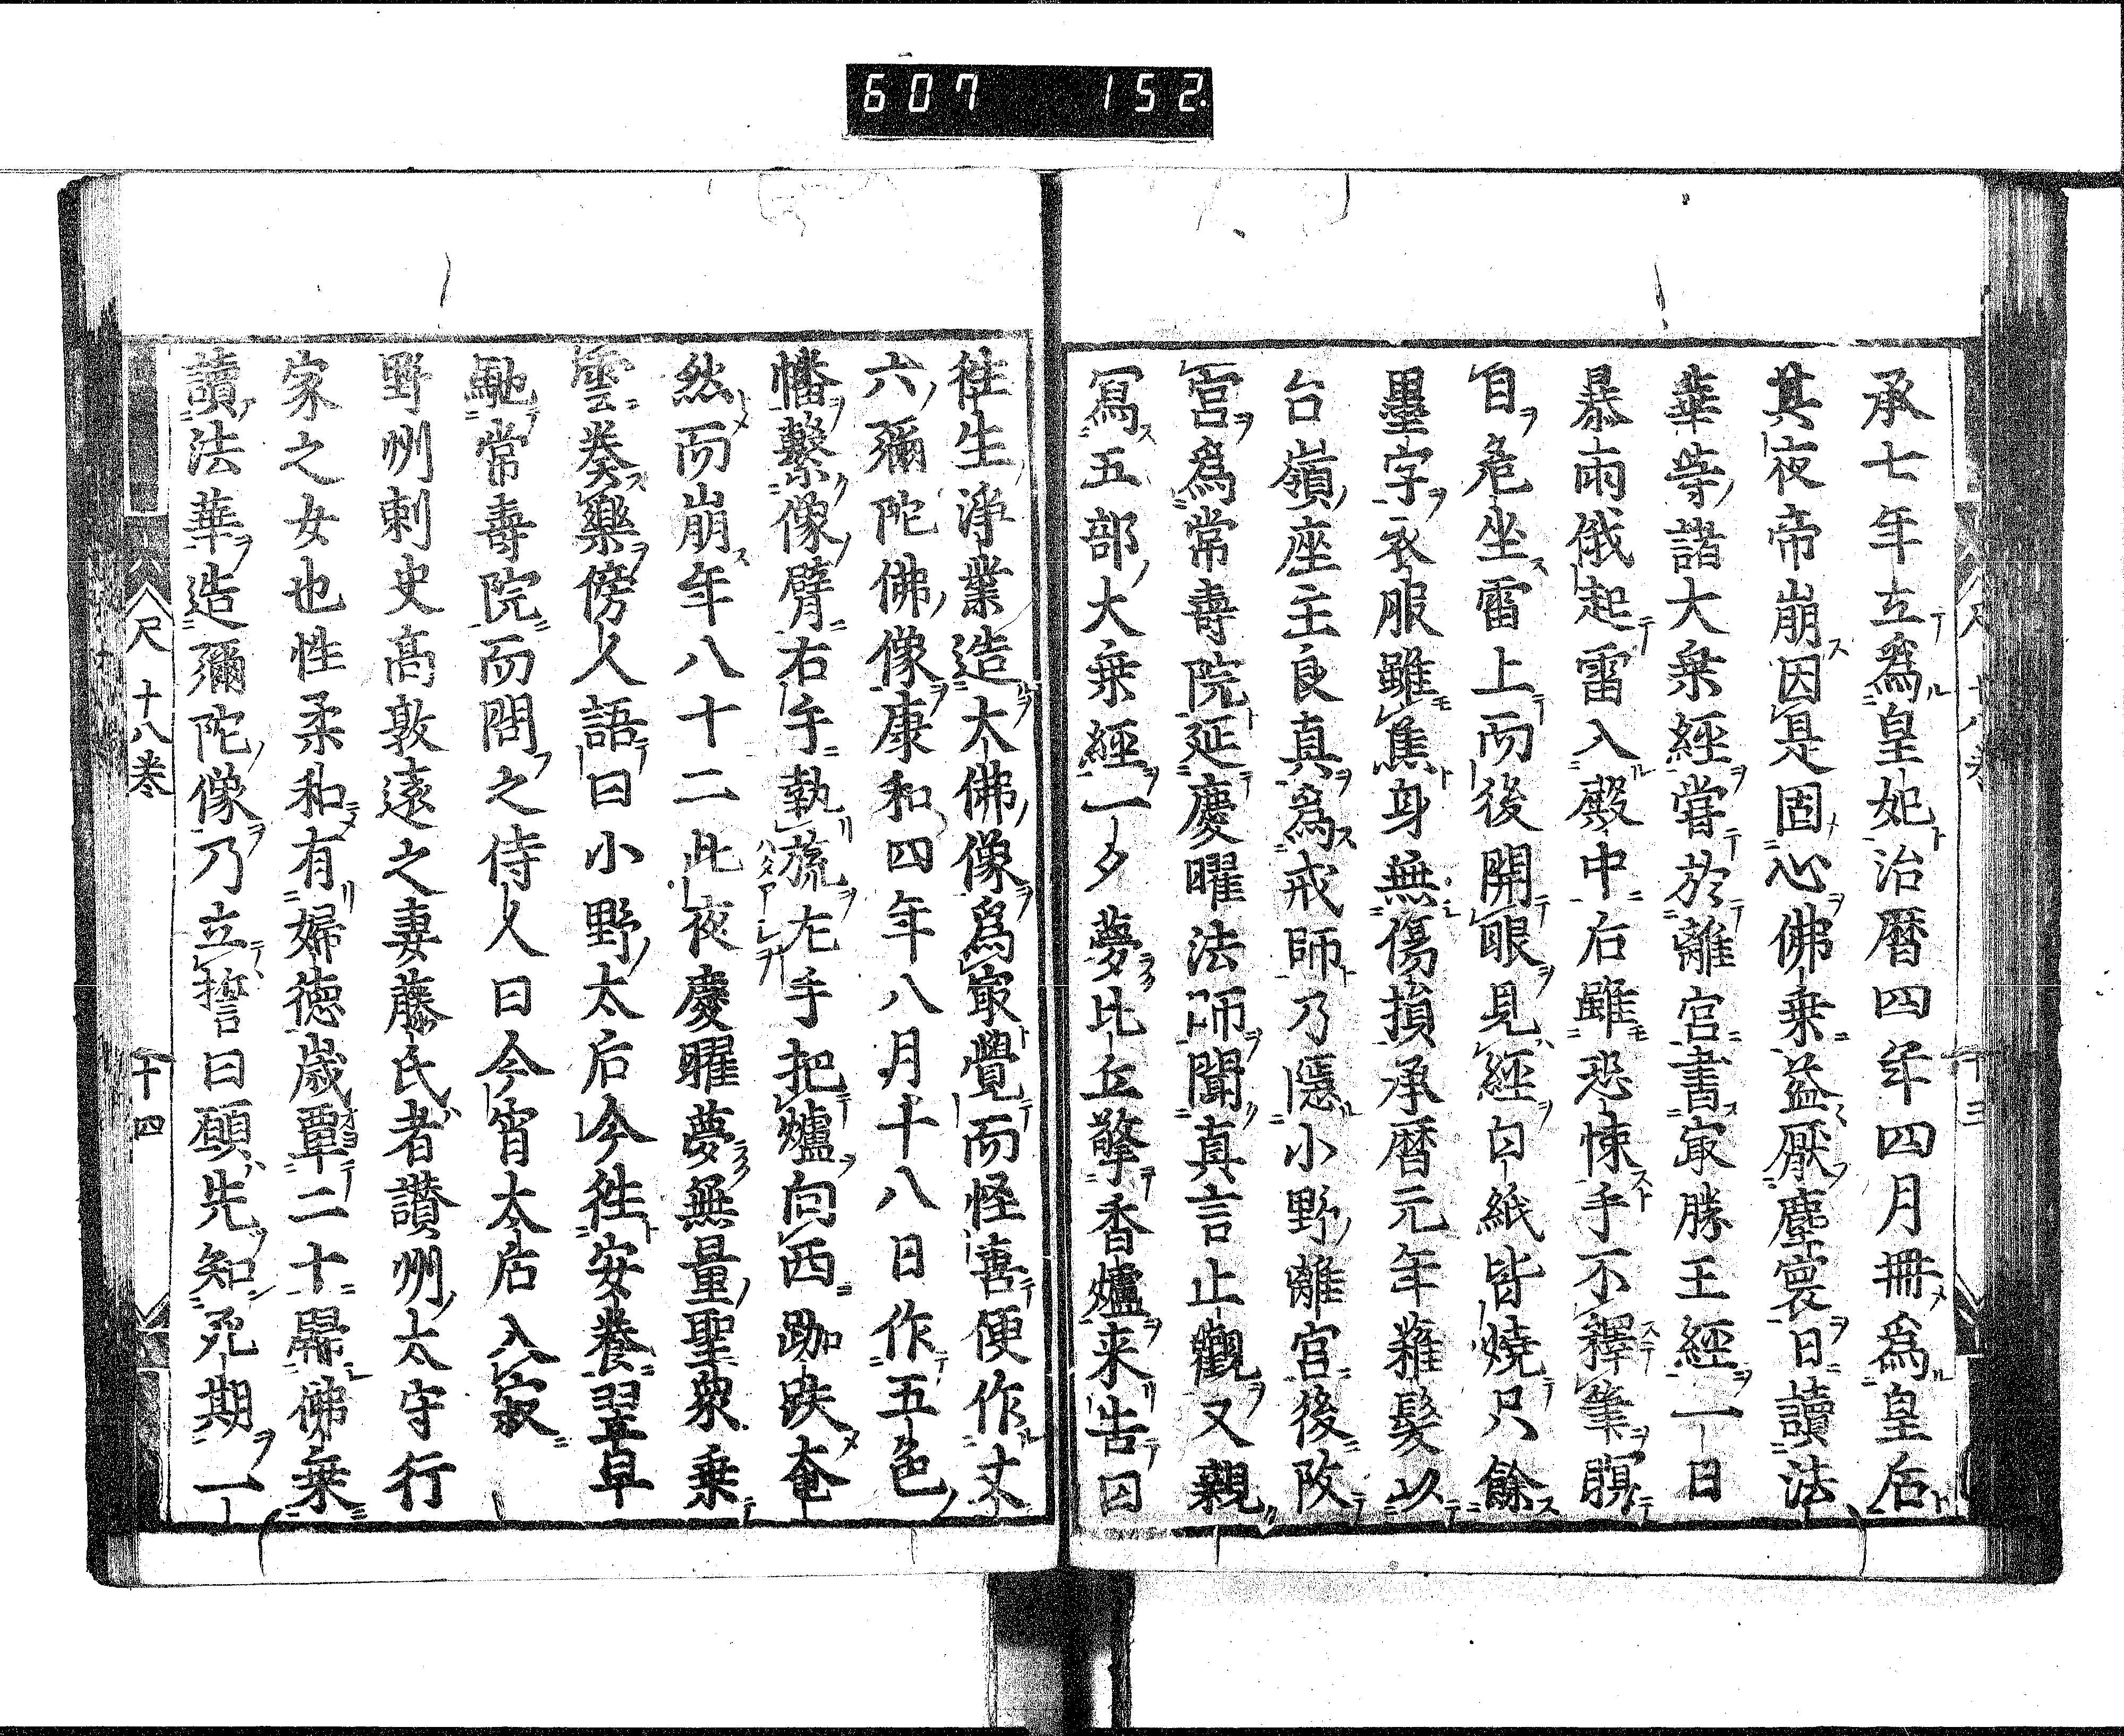 607 152
承七年立爲皇妃治曆四年四月冊爲皇后
其夜帝崩因是固心佛乗益厭塵寰日讀法
華等諸大乗經甞於離宮書㝡勝王經一日
暴雨俄起雷入殿中后雖恐悚手不釋筆瞑
目危坐雷上而後開眼見經白紙皆燒只餘
墨字衣服雖焦身無傷損承曆元年薙髪以
台嶺座主良真爲戒師乃隱小野離宮後改
宮爲常壽院延慶曜法師聞真言止觀又親
寫五部大乗經一夕夢比丘擎香爐来告曰
徃生淨業造大佛像爲㝡覺而怪喜便作丈
六彌陀佛像康和四年八月十八日作五色
幡繫像臂右手執旒左手把爐向西跏趺奄
然而崩年八十二此夜慶曜夢無量聖衆乗
雲奏樂傍人語曰小野太后今徃安養翌早
馳常壽院而問之侍人曰今宵太后入寂
野州刺史高敦遠之妻藤氏者讃州太守行
家之女也性柔和有婦德歳覃二十歸佛乗
讀法華造彌陀像乃立誓曰願先知死期一
尺 十八巻 十四